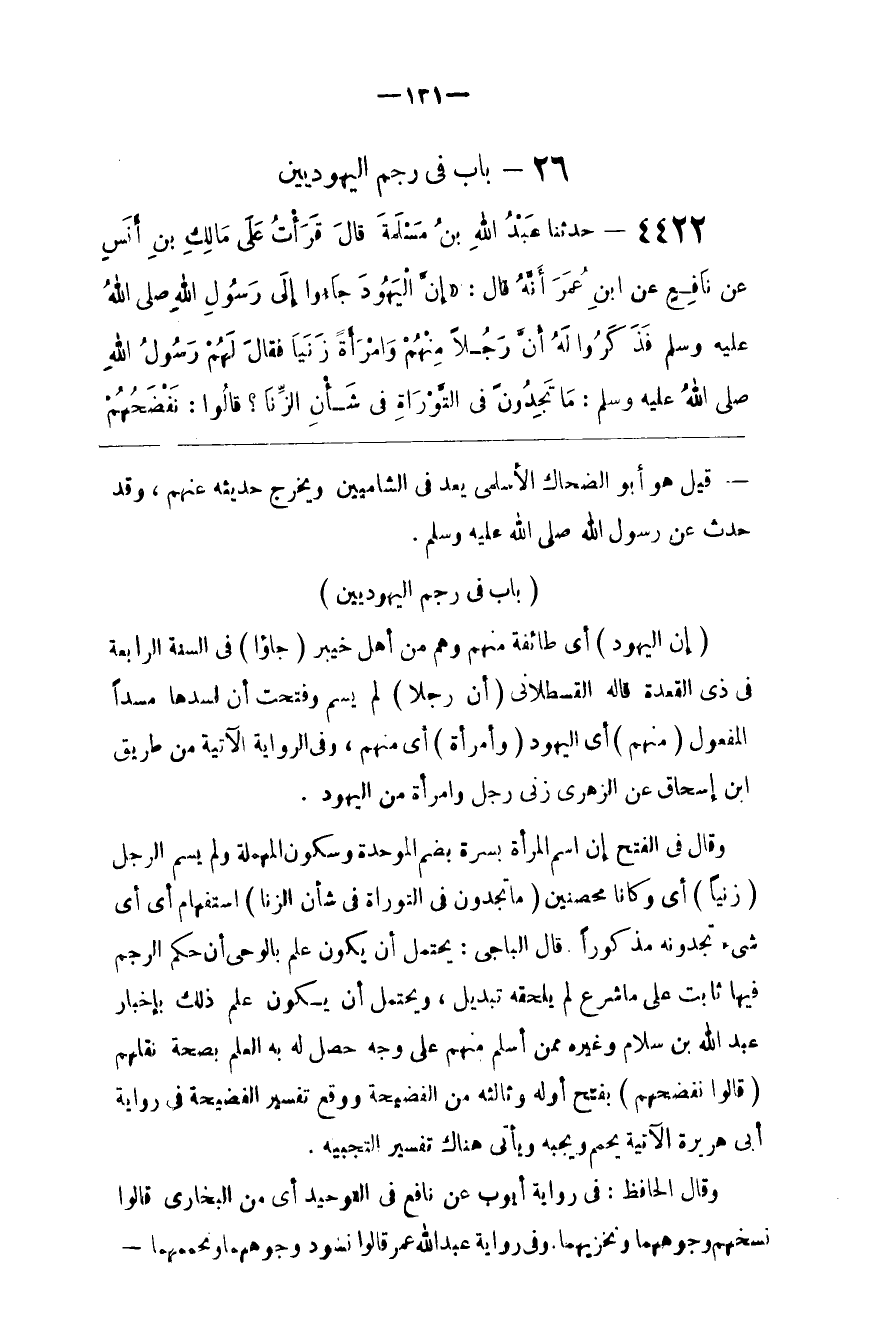 —١٣١—
٢٦ – باب فى رجم اليهوديين
٤٤٢٢ – حدثنا عَبْدُ اللهِ بنُ مَسْلَمَةَ قالَ قَرَأْتُ عَلَى مَالِكِ بنِ أَنَسٍ
عن نَافِعٍ عن ابنِ عُمَرَ أَنَّهُ قال : «إنَّ الْيَهُودَ جاءوا إلَى رَسُولِ اللهِ صلى اللهُ
عليه وسلم فَذَكَرُوا لَهُ أنَّ رَجُـلاً مِنْهُمْ وَامْرَأَةً زَنَيَا فقالَ لَهُمْ رَسُولُ اللهِ
صلى اللهُ عليه وسلم : مَا تَجِدُونَ فى التَّوْرَاةِ فى شَـأْنِ الزِّنَا ؟ قالُوا : نَفْضَحُهُمْ
— قيل هو أبو الضحاك الأسلمى يعد فى الشاميين ويخرج حديثه عنهم ، وقد
حدث عن رسول الله صلى الله عليه وسلم .
( باب فى رجم اليهوديين )
( إن اليهود ) أى طائفة منهم وهم من أهل خيبر ( جاؤا ) فى السنة الرابعة
فى ذى القعدة قاله القسطلانى ( أن رجلا ) لم يسم وفتحت أن لسدها مسداً
المفعول ( منهم ) أى اليهود ( وأمرأة ) أى منهم ، وفى الرواية الآتية من طريق
ابن إسحاق عن الزهرى زنى رجل وامرأة من اليهود .
وقال فى الفتح إن اسم المرأة بسرة بضم الموحدة وسكون المهملة ولم يسم الرجل
( زنيا ) أى وكانا محصنين ( ماتجدون فى التوراة فى شأن الزنا ) استفهام أى أى
شىء تجدونه مذكوراً . قال الباجى : يحتمل أن يكون علم بالوحى أن حكم الرجم
فيها ثابت على ماشرع لم يلحقه تبديل ، ويحتمل أن يـكون علم ذلك بإخبار
عبد الله بن سلام وغيره ممن أسلم منهم على وجه حصل له به العلم بصحة نقلهم
( قالوا نفضحهم ) بفتح أوله وثالثه من الفضيحة ووقع تفسير الفضيحة فى رواية
أبى هريرة الآتية يحمم ويجبه ويأتى هناك تفسير التجبيه .
وقال الحافظ : فى رواية أيوب عن نافع فى التوحيد أى من البخارى قالوا
نسخم وجوههما ونخزيهما . وفى رواية عبد الله عمر قالوا نسود وجوههما ونحممهما —